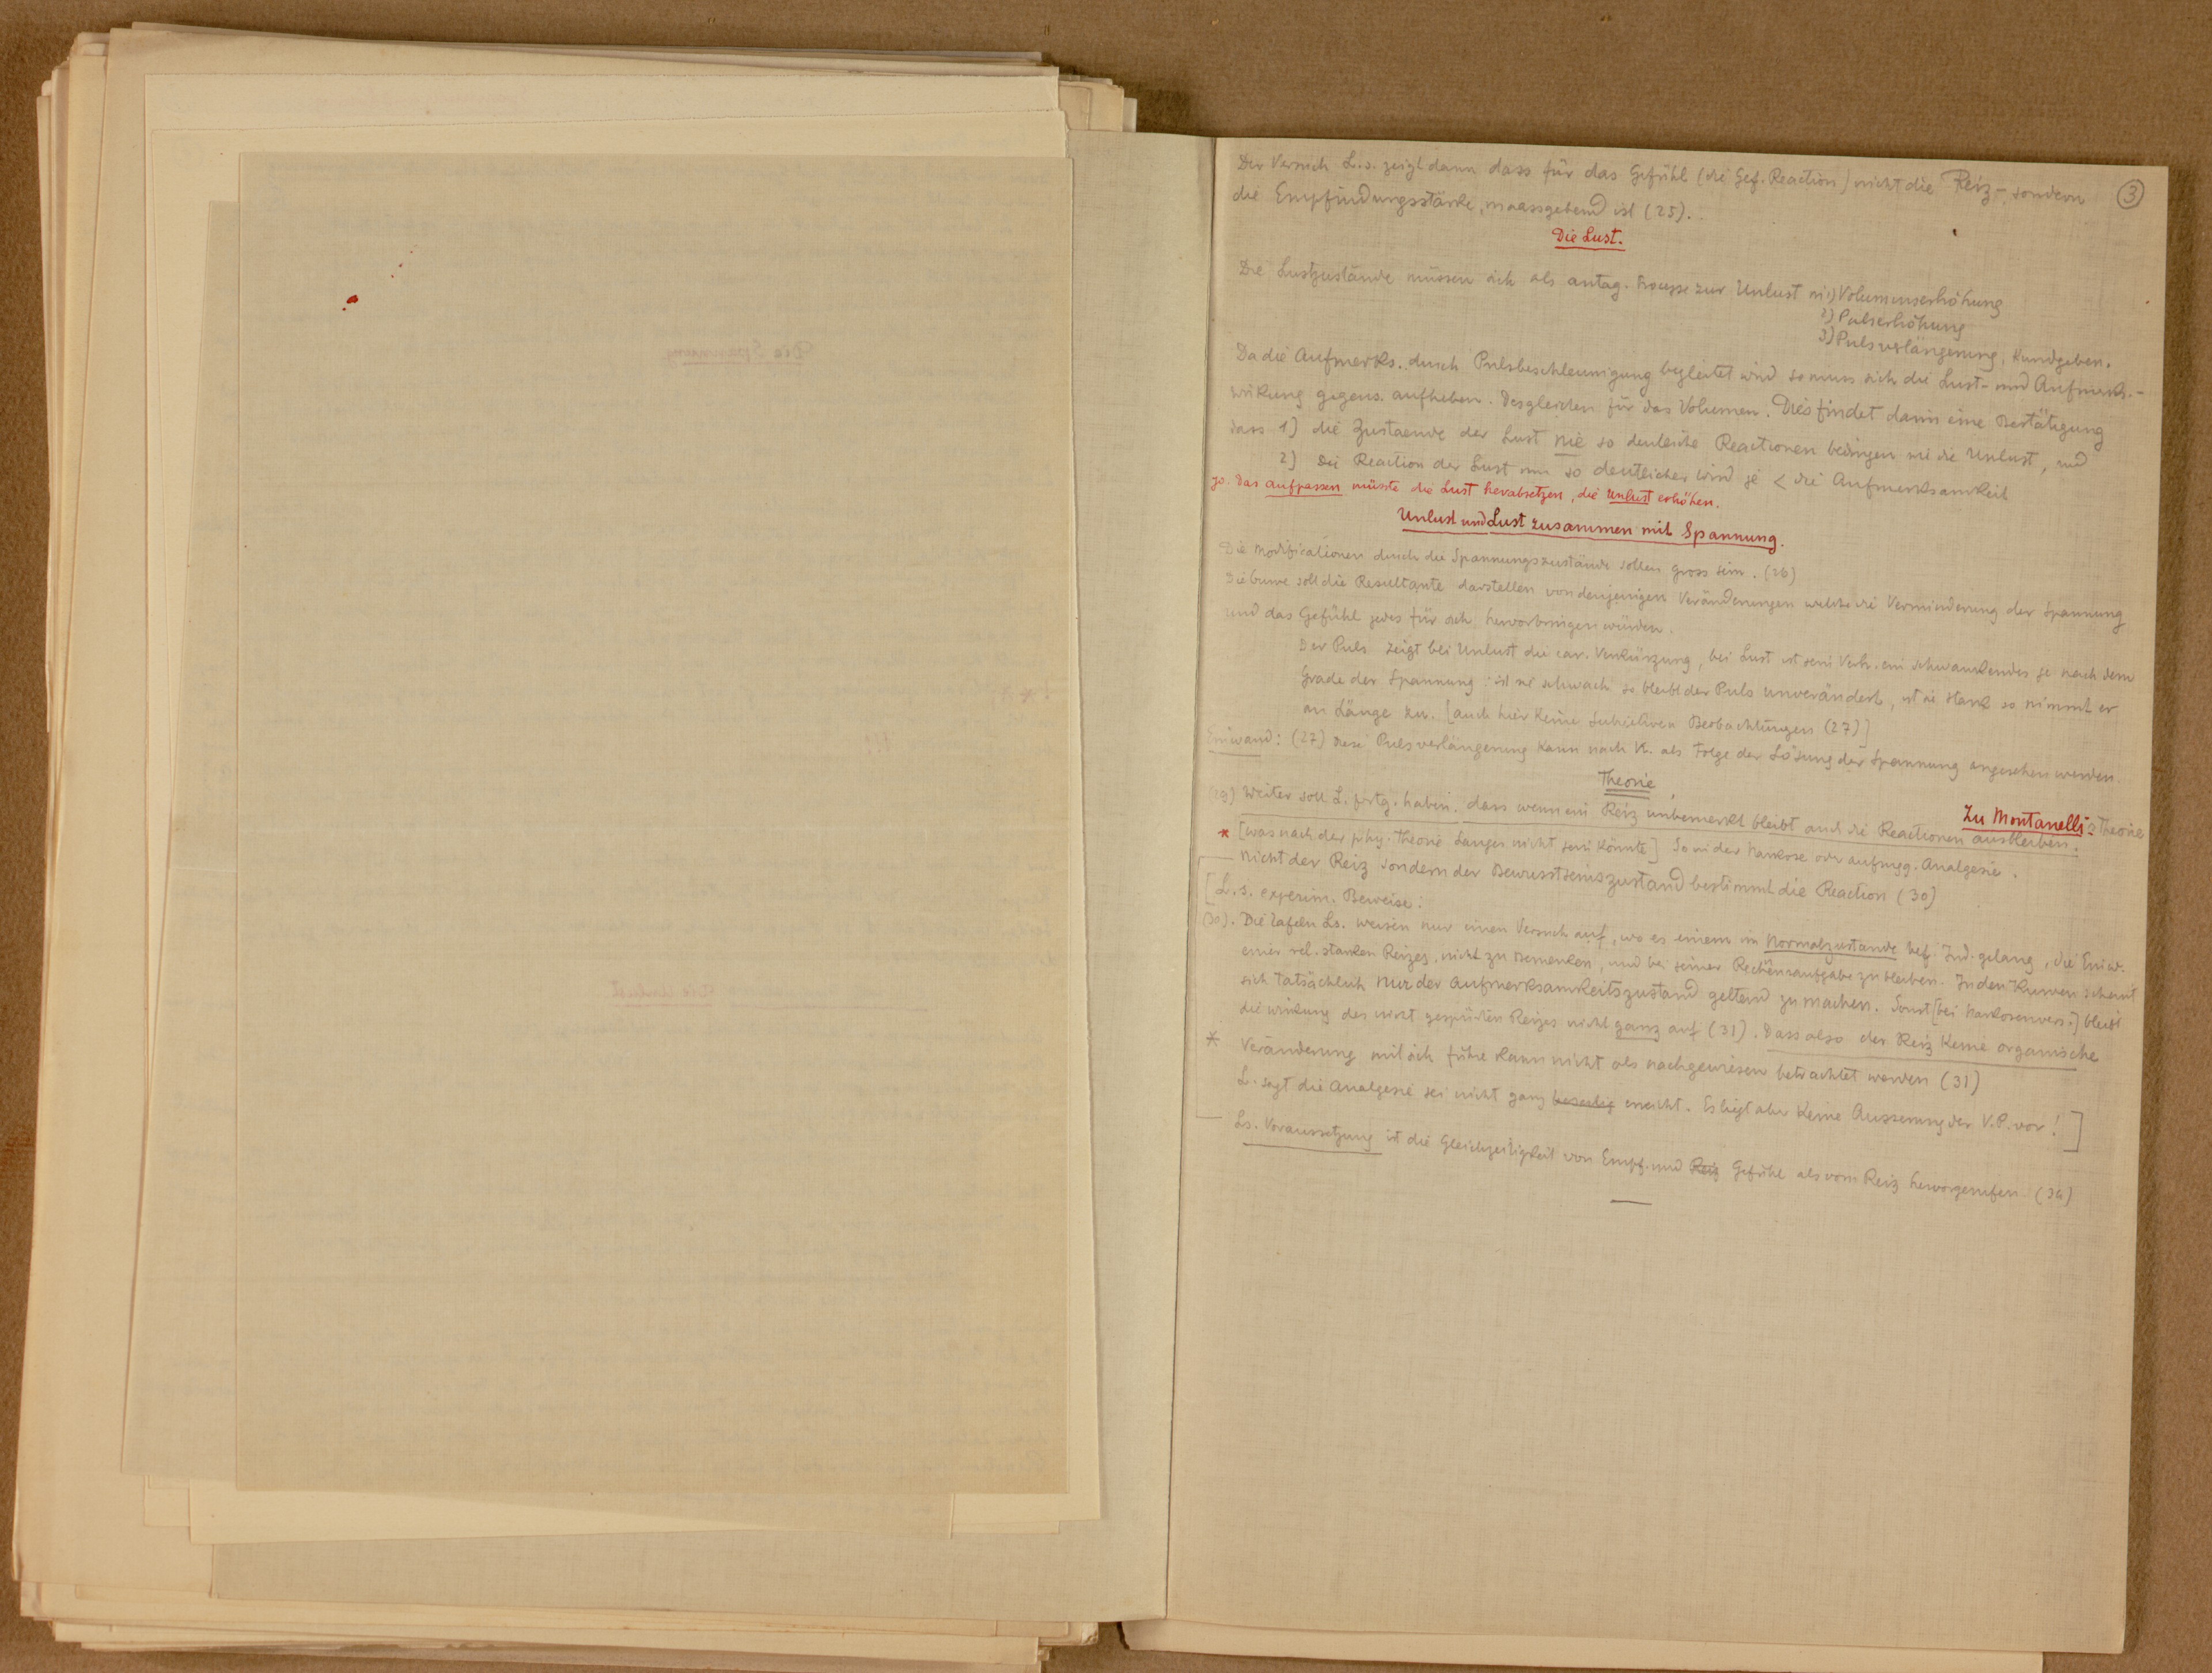 3
Der Versuch L.s. zeigt dann dass für das Gefühl (die Gef. Reaction) nicht die Reiz-, sondern
die Empfindungsstärke, maassgebend ist (25).
Die Lust.
Die Lustzustände müssen sich als antag. zur Unlust in 1) Volumenserhöhung
2) Pulserhöhung
3) Pulsverlängerung, Kundgeben.
Da die Aufmerks. durch Pulsbeschleunigung begleitet wird so muss sich die Lust- und Aufmerks.-
wirkung gegens. aufheben. Desgleichen für das Volumen. Dies findet darin eine Bestätigung
dass 1) die Zustaende der Lust nie so deutliche Reactionen bedingen wie die Unlust, und
2) Die Reaction der Lust um so deutlicher wird je < die Aufmerksamkeit
Das aufpassen müsste die Lust herabsetzen, die Unlust erhöhen.
Unlust und Lust zusammen mit Spannung.
Die Modificationen durch die Spannungszustände sollen gross sein. (26)
Die Curve soll die Resultante darstellen von denjenigen Veränderungen welche die Verminderung der Spannung
und das Gefühl jedes für sich hervorbringen würden.
Der Puls zeigt bei Unlust die car. Verkürzung, bei Lust ist sein Verh. ein schwankendes je nach dem
Grade der Spannung: ist sie schwach so bleibt der Puls unverändert, ist sie stark so nimmt er
an Länge zu. [auch hier Keine subjectiven Beobachtungen (27)]
Einwand: (27) Diese Pulsverlängerung Kann nach als Folge der Lösung der Spannung angesehen werden.
Theorie
Zu Montanelli's Theorie
(29) Weiter soll L. haben. dass wenn ein Reiz unbemerkt bleibt auch die Reactionen ausbleiben.
* [was nach der phy. Theorie Langes nicht sein Könnte] So in der Narkose oder Analgesie.
Nicht der Reiz sondern der Bewusstseinszustand bestimmt die Reaction (30)
[L.s. experim. Beweise:
(30). Die Tafeln Ls. weisen nur einen Versuch auf, wo es einem im Normalzustande bef. Ind. gelang, die Einw.
einer rel. starken Reizes, nicht zu bemerken, und bei seiner Rechenaufgabe zu bleiben. In den Kurven scheint
sich tatsächlich nur der Aufmerksamkeitszustand geltend zu machen. Sonst [bei Narkosenvers.] bleibt
die wirkung des nicht gespürten Reizes nicht ganz auf (31). Dass also der Reiz Keine organische
* Veränderung mit sich führe kann nicht als nachgewiesen betrachtet werden (31)
L. sagt die Analgesie sei nicht ganz erreicht. Es liegt aber Keine Äusserung der V.P. vor! ]
Ls. Voraussetzung ist die Gleichzeitigkeit von Empf. und Reiz Gefühl als vom Reiz hervorgerufen (34)